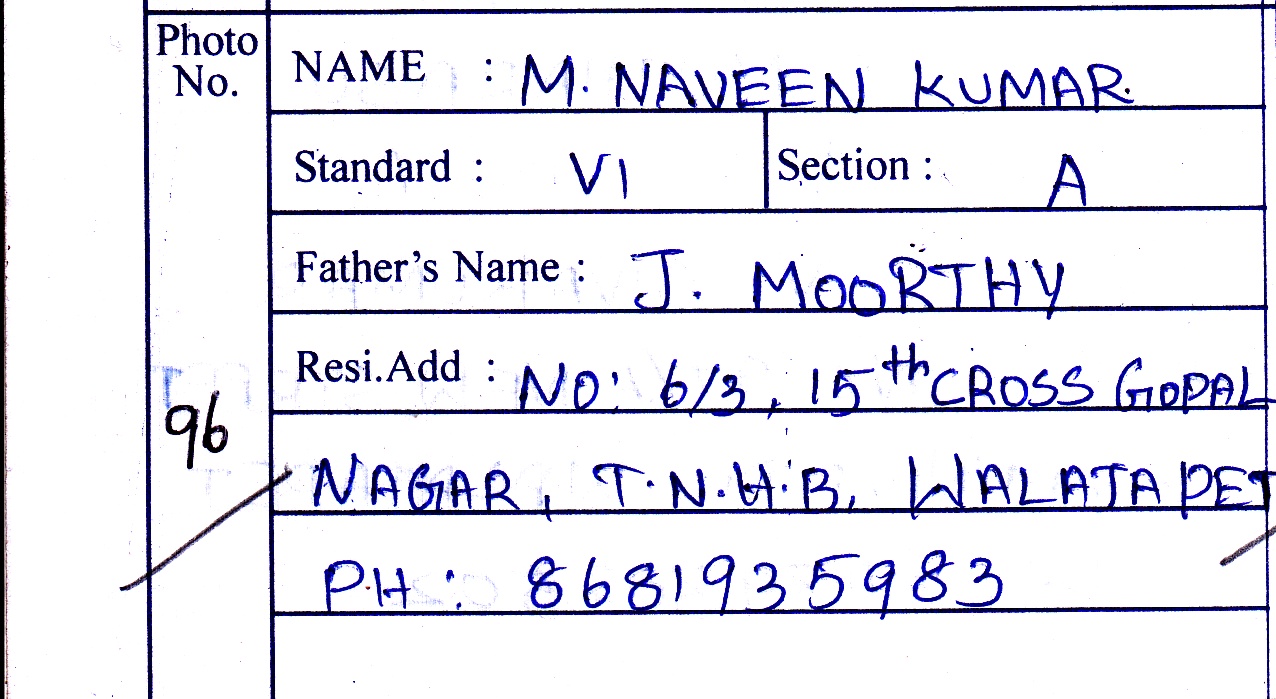 Photo No.
NAME : M. NAVEEN KUMAR.
Standard : VI Section : A
Father's Name : J. MOORTHY
Resi.Add : NO: 6/3, 15th CROSS GOPAL
96
NAGAR, T.N.H.B, WALAJAPET
PH: 8681935983